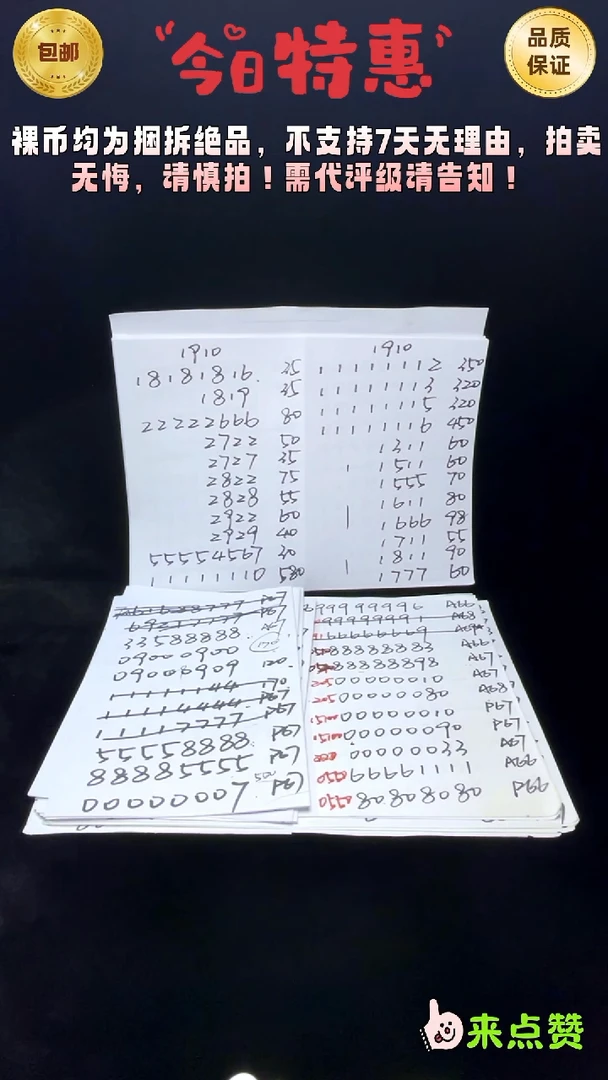 包邮
今日特惠
品质
保证
裸币均为捆拆绝品，不支持7天无理由，拍卖
无悔，请慎拍！需代评级请告知！
1910
18181816. 35
1819 35
22222666 80
2722 50
2727 35
2822 75
2828 55
2922 60
2929 40
55554567 30
11111110 580
1910
11111112 350
11111113 320
11111115 320
11111116 450
1311 60
1 1511 60
1555 70
1611 80
1 1666 98
1711 55
1811 90
1 1777 60
33588888
09000900 170
09000909 120
11111144 170
11114444 P67
11117777 P67
55558888 P67
88885555 P67
00000007 500 P67
99999996 A66
99999991 A68
66666669
88888883 A66
88888898 A67
205 00000010 A67
205 00000080 A68
1510 00000010 P67
1510 00000090 P67
00000033 A67
050 99991111 A66
050 80808080 P66
来点赞